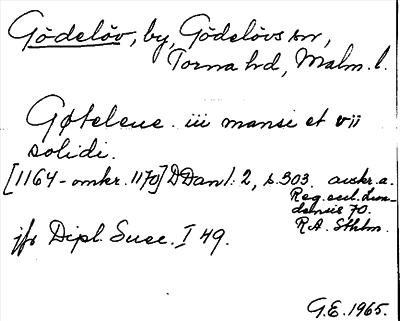 Gödelöv, by, Gödelövs sn,
Torna hd, Malm. l.
Gøteleue. iii mansi et vii
solidi.
[1164-omkr. 1170] DDan I: 2, s. 303. avskr. a.
Reg. eccl. Lun-
densis 70.
R.A. Sthlm.
jfr Dipl. Suec. I 49.
G.E. 1965.